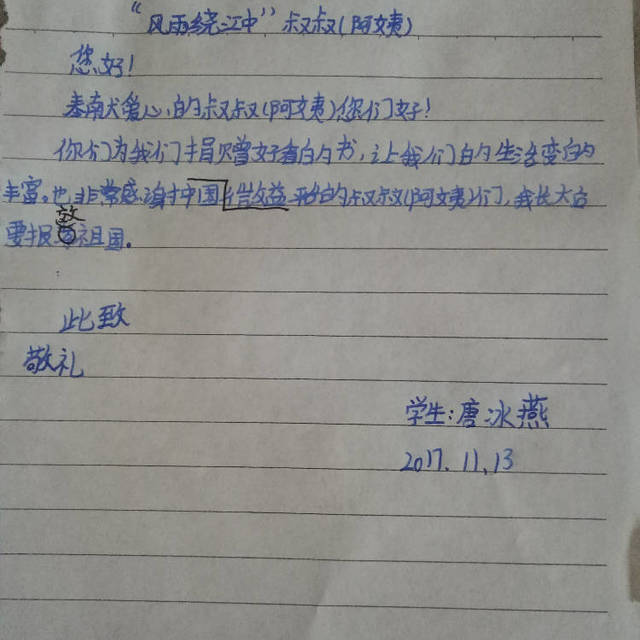 “风雨绕江中”叔叔(阿姨)
您好!
奉献爱心的叔叔(阿姨)您们好!
你们为我们捐赠好看的书,让我们的生活变的
丰富。也非常感谢中国益的叔叔(阿姨)们,我长大后
要报效祖国。
此致
敬礼
学生:唐冰燕
2017.11.13